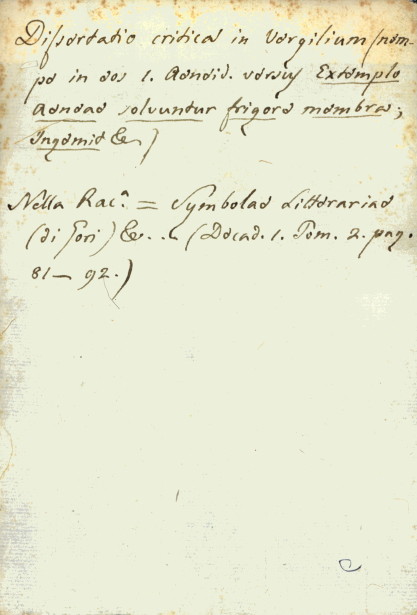 Dissertatio critica in Vergilium (nem-
pe in eos 1. Aeneid. versus Extemplo
Aeneae solvuntur frigore membra;
Ingemit &c)
Nella Rac.ª = Symbolae Litterariae
(di Gori) &c... (Decad. 1. Tom. 2. pag.
81 — 92.)